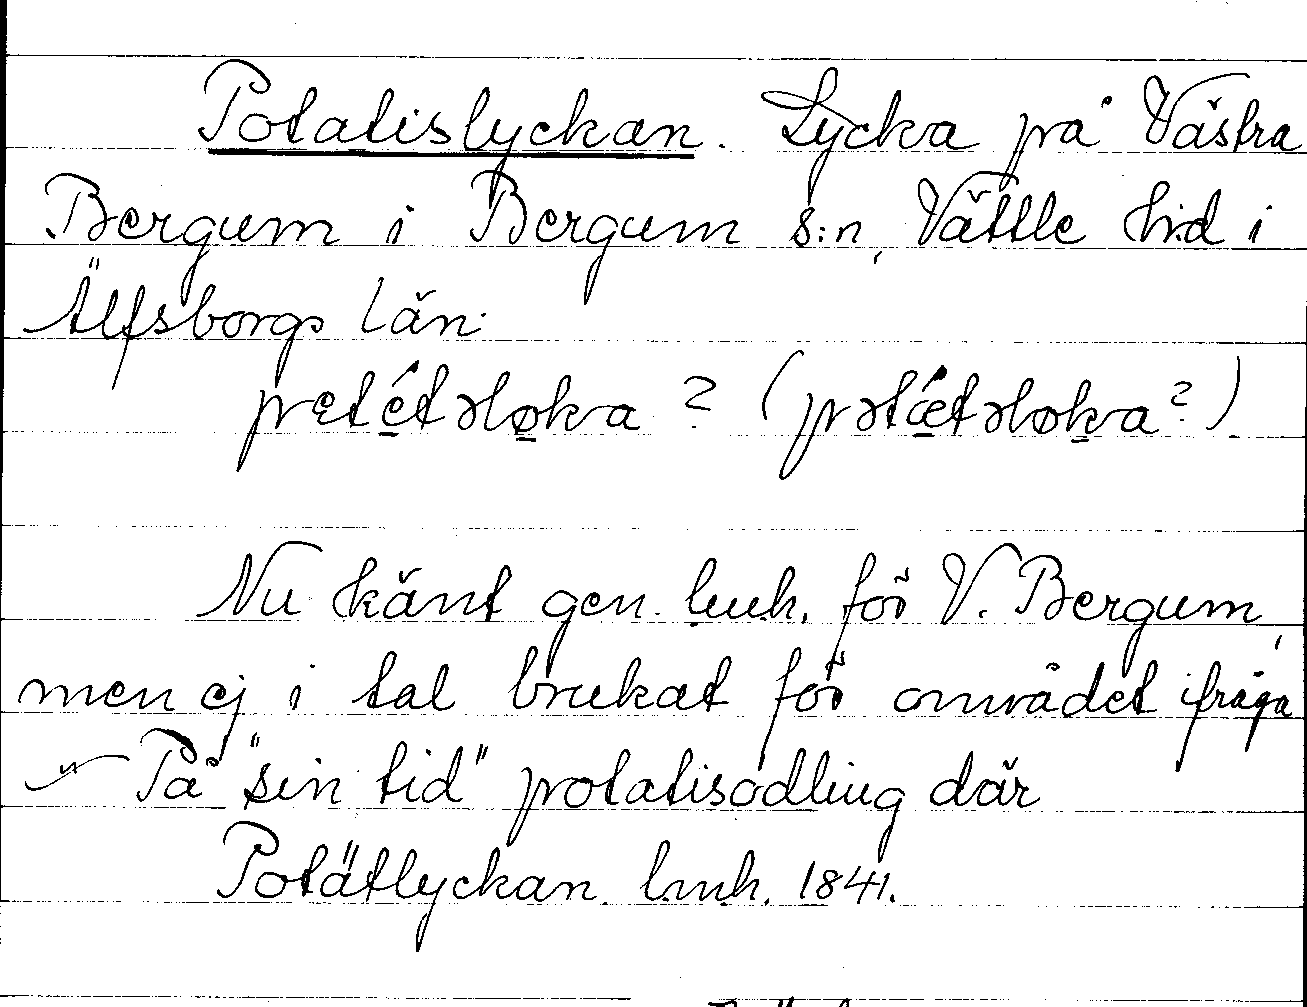 Potatislyckan. Lycka på Västra
Bergum i Bergum s:n, Vättle hd i
Älfsborgs län.
petétsloka ? (pətǽtsloka ?)
Nu känt gen. lmh. för V. Bergum,
men ej i tal brukat för området ifråga
På "sin tid" potatisodling där
Potätlyckan lmh. 1841.